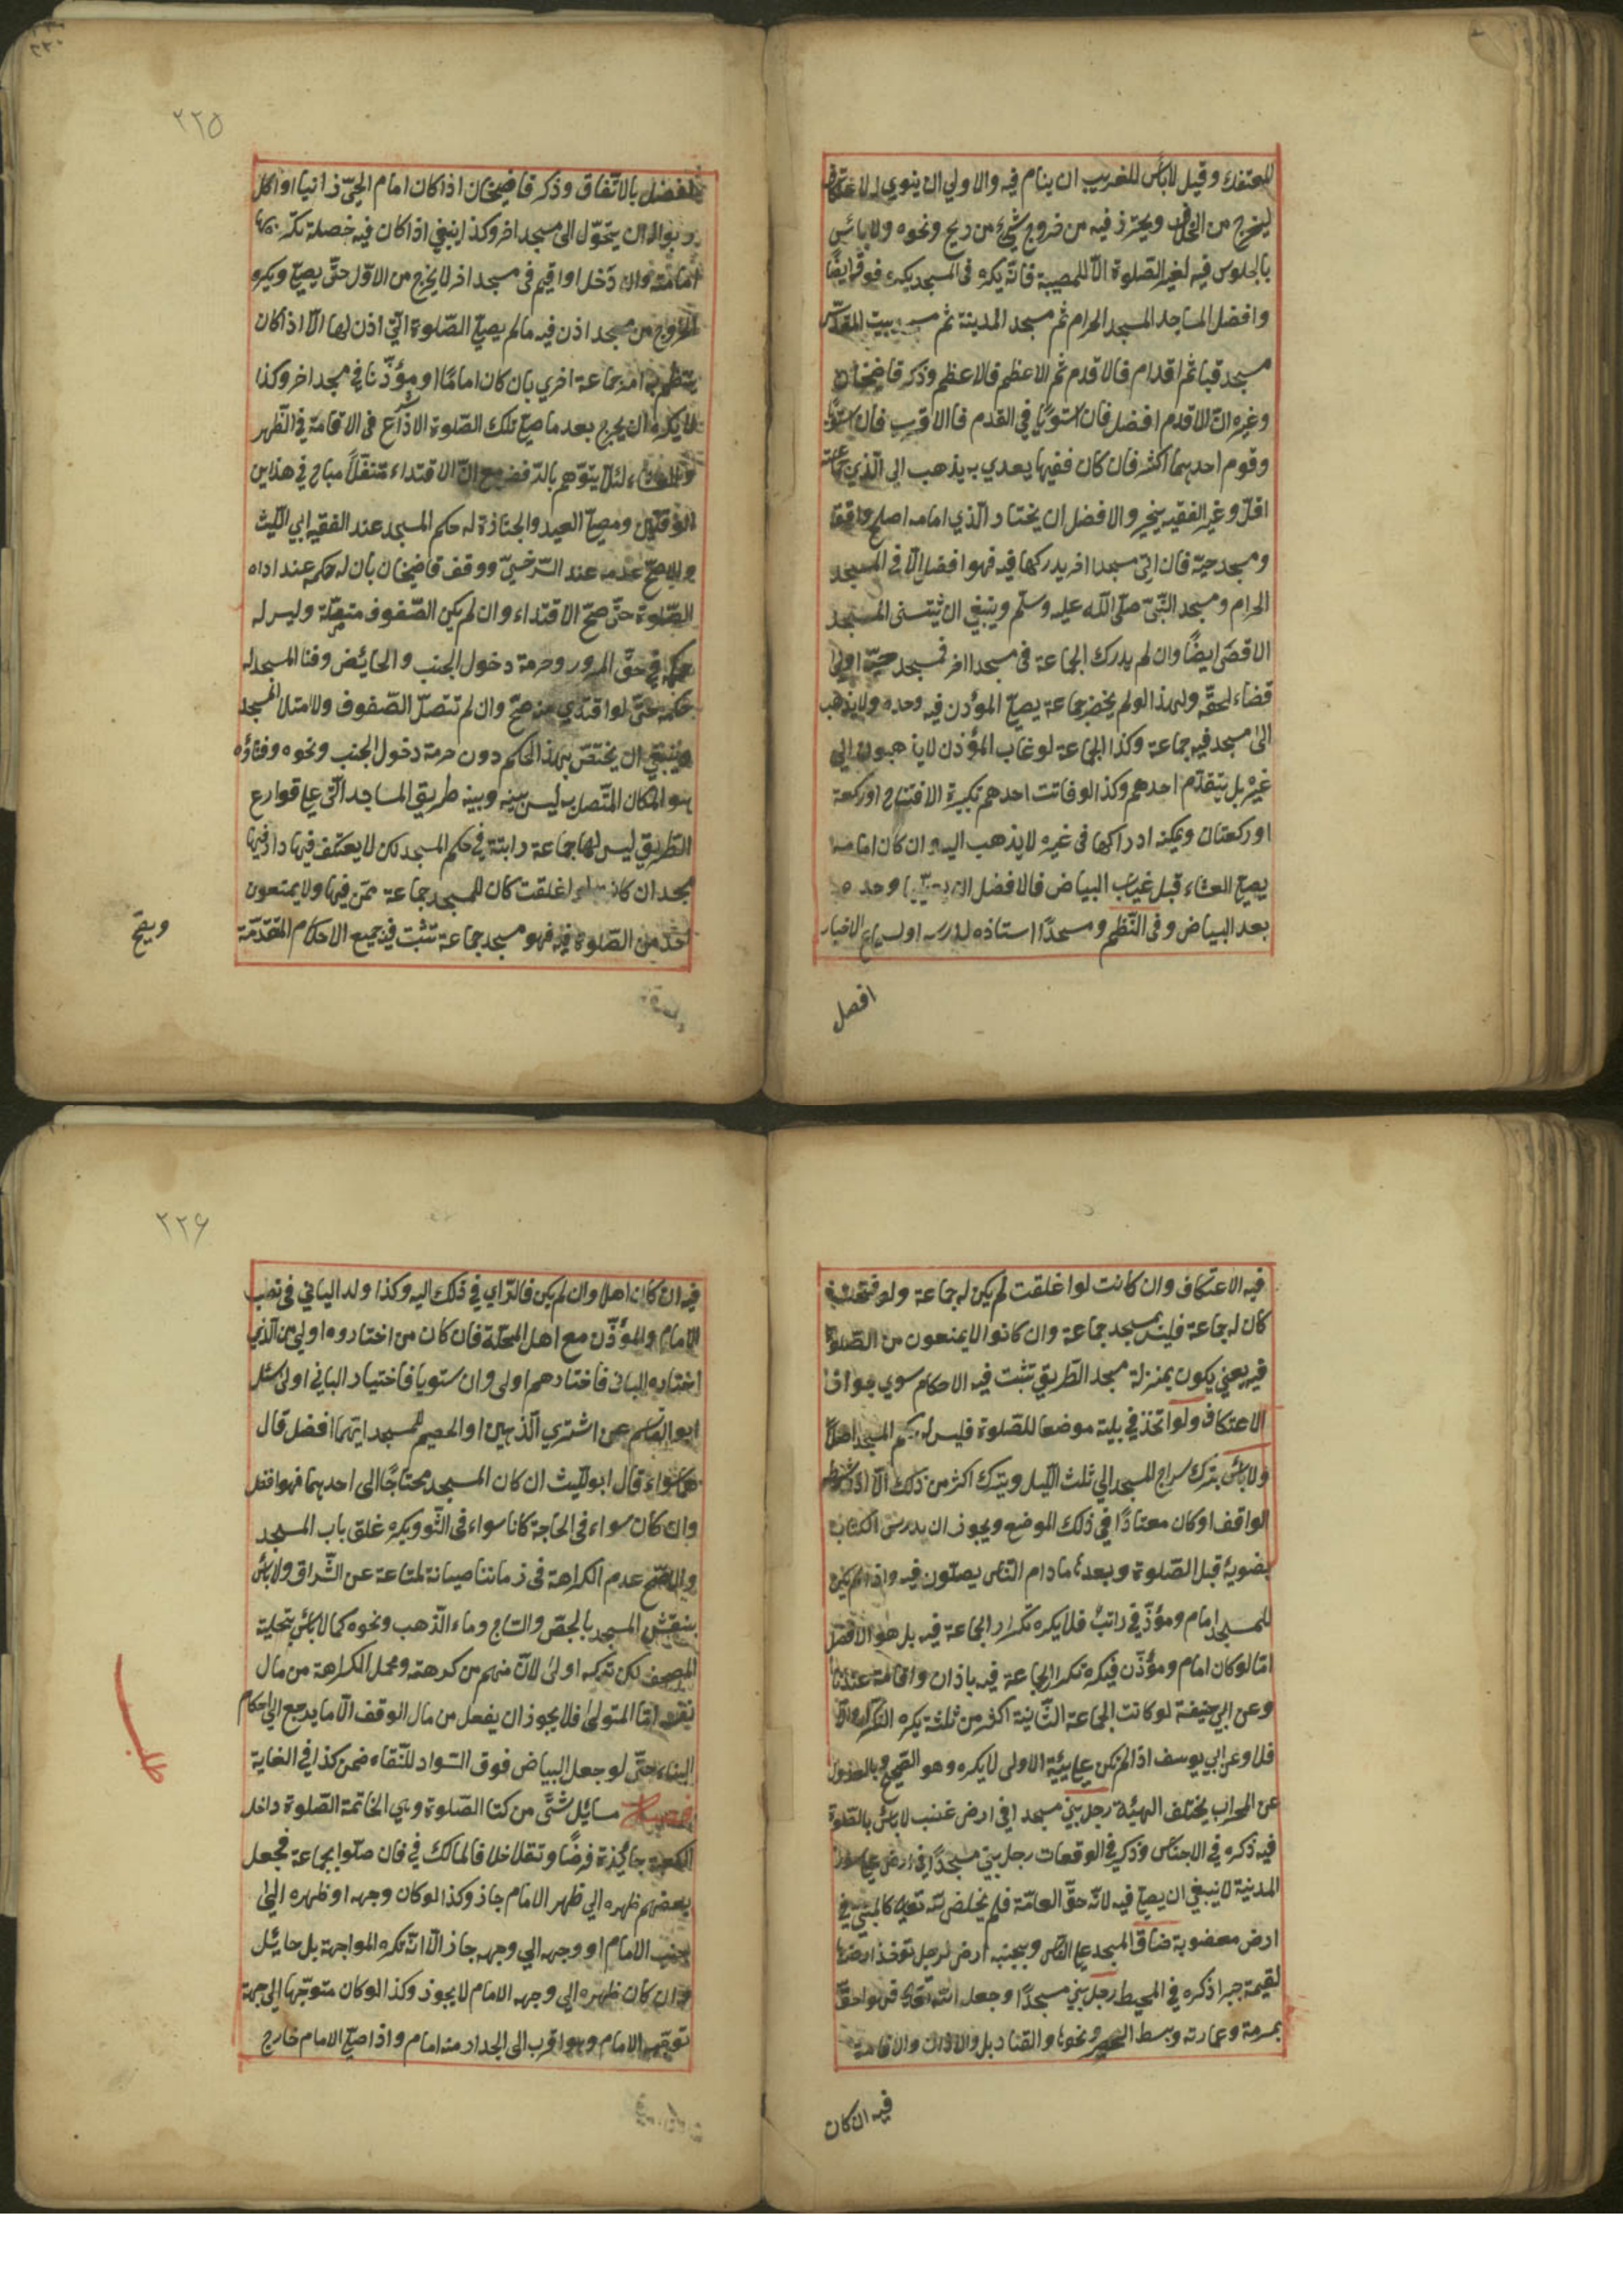 للمعتكف وقيل لا بأس للغريب ان ينام فيه والاولي ان ينوي الاعتكاف
ليخرج من الخلاف ويحترز فيه من خروج شيء من ريح ونحوه ولا باس
بالجلوس فيه لغير الصّلوة الّا للمصيبة فانّه يكره فى المسجد يكره فوقه ايضًا
وافضل المساجد المسجد الحرام ثم مسجد المدينة ثم بيت المقدّس
مسجد قبا ثم اقدام فالاقدم ثم الاعظم فالاعظم وذكر قاضيخان
وغيره انّ الاقدم افضل فان استويا في القدم فالاقرب فان استويا
وقوم احدهما اكثر فان كان فقيها يعدي به يذهب الى الّذي جماعته
اقلّ وغير الفقيه يخير والافضل ان يختار الّذي امامه اصلح وافقه
ومسجد حيّه فان اتي مسجدا اخر يدركها فيه فهو افضل الّا في المسجد
الحرام ومسجد النّبيّ صلّى اللّه عليه وسلّم وينبغي ان يثتنى المسجد
الاقصى ايضًا وان لم يدرك الجماعة فى مسجدا اخر فمسجد حيّه اولى
قضاء لحقّه ولهذا لو لم يحضر جماعة يصلّي المؤذن فيه وحده ولا يذهب
الى مسجد فيه جماعة وكذا الجماعة لو غاب المؤذن لا يذهبون الى
غيره بل يتقدّم احدهم وكذا لو فاتت احدهم تكبيرة الافتتاح او ركعة
او ركعتان ويمكنه ادراكها فى غيره لا يذهب اليه وان كان امامه
يصلّي العشاء قبل غياب البياض فالافضل ان يصلّيها وحده
بعد البياض وفى النّظم ومسجدًا استاذه لدرسه او لسماع الاخبار
افضل
٢٢٥
افضل بالاتّفاق وذكر قاضيخان اذا كان امام الحيّ زانيا او اكل
ربوا له ان يتحوّل الى مسجد اخر وكذا ينبغي اذا كان فيه خصلة تكره بها
امامته وان دخل او اقيم فى مسجد اخر لا يخرج من الاوّل حتّى يصلّي ويكره
الخروج من مسجد اذن فيه مالم يصلّي الصّلوة الّتي اذن لها الّا اذا كان
ينتظم به امر جماعة اخري بان كان امامًا او مؤذّنا في مسجد اخر وكذا
لا يكره ان يخرج بعد ما صلّى تلك الصّلوة الّا اذا شرع فى الاقامة في الظّهر
والعشاء لئلّا يتوّهم بالترفض مع انّ الاقتداء متنفّلًا مباح في هذاين
الوقتين ومصلّى العيد والجنازة له حكم المسجد عند الفقيه ابي اللّيث
والاصحّ عدمه عند السّرخسيّ ووقف قاضيخان بان له حكمه عند اداء
الصّلوة حتّى صحّ الاقتداء وان لم يكن الصّفوف متصلة وليس له
حكمه في حقّ المرور وحرمة دخول الجنب والحائض وفنا المسجد له
حكمه حتّى لو اقتدي منه صحّ وان لم تتصل الصّفوف ولا امتلا المسجد
وينبغي ان يختصّ بهذا الحكم دون حرمة دخول الجنب ونحوه وفناؤه
هو المكان المتّصل به ليس بينه وبينه طريق المساجد الّتي على قوارع
الطّريق ليس لها جماعة راتبة في حكم المسجد لكن لا يعتكف فيها دار فيها
مسجد ان كانت لو اغلقت كان للمسجد جماعة ممّن فيها ولا يمنعون
احدٌ من الصّلوة فيه فهو مسجد جماعة تثبت فيه جميع الاحكام المتقدّمة
ويصحّ
فيه الاعتكاف وان كانت لو اغلقت لم يكن له جماعة ولو فتحت
كان له جماعة فليس بمسجد جماعة وان كانوا لا يمنعون من الصّلوة
فيه يعني يكون بمنزلة مسجد الطّريق تثبت فيه الاحكام سوي جواز
الاعتكاف ولو اتخذ في بيته موضعا للصّلوة فليس له حكم المسجد اصلًا
ولا باس بترك سراج المسجد الي ثلث اللّيل ويترك اكثر من ذلك الّا اذا شرط
الواقف او كان معتادًا في ذلك الموضع ويجوز ان يدرس الكتاب
بضويه قبل الصّلوة وبعدها مادام النّاس يصلّون فيه واذا لم يكن
للمسجد امام ومؤذّن راتبٌ فلا يكره تكرار الجماعة فيه بل هو الافضل
امّا لو كان امام ومؤذّن فيكره تكرار الجماعة فيه باذان واقامة عندنا
وعن ابي حنيفة لو كانت الجماعة الثّانية اكثر من ثلثة يكره التكرار والّا
فلا وعن ابي يوسف اذا لم تكن علي هيئة الاولى لا يكره وهو الصّحيح وبالعدول
عن المحراب يختلف الهيئة رجل بنى مسجدا في ارض غصب لا باس بالصّلوة
فيه ذكره في الاجناس وذكر في الوقعات رجل بنى مسجدًا في ارض على سور
المدنية لا ينبغي ان يصلّي فيه لانّه حقّ العامّة فلم يخلص للّه تعالى كالمبني في
ارض مغصوبة ضاق المسجد على النّاس وبجنبه ارض لرجل تؤخذ ارضه
لقيمة جبرا ذكره في المحيط رجل بنى مسجدًا وجعله للّه تعالى فهو احقّ
بمرمة وعمارته وبسط الحصير ونحوها والقناديل والاذان والاقامة
فيه ان كان
٢٢٦
فيه ان كان اهلا وان لم يكن فالرّاي في ذلك اليه وكذا ولد الباني فى نصب
الامام والمؤذّن مع اهل المحلّة فان كان من اختاروه اولى من الّذي
اختاره الباني فاختارهم اولى وان ستويا فاختيار الباني اولى سئل
ابو القاسم عن اشتري الّذهين او الحصير للمسجد ايّهما افضل قال
هما سواء قال ابو ليّث ان كان المسجد محتاجًا الى احدهما فهو افضل
وان كان سواء فى الحاجة كانا سواء فى الثّوب ويكره غلق باب المسجد
والاصحّ عدم الكراهة فى زماننا صيانة لمتاعة عن السّراق ولا باس
بنقش المسجد بالجصّ والسّاج وماء الذّهب ونحوه كما لا باس بتحلية
المصحف لكن تركه اولى لانّ منهم من كرهته ومحمل الكراهة من مال
نفسه امّا المتولى فلا يجوز ان يفعل من مال الوقف الّا ما يرجع الي احكام
البناء حتّى لو جعل البياض فوق السّواد للنّقاء ضمن كذا في الغاية
فصل مسايل شتّى من كتا الصّلوة وهي الخاتمة الصّلوة داخل
الكعبة جايزة فرضًا ونفلا خلا فالمالك في فان صلّوا بجماعة فجعل
بعضهم ظهره الي ظهر الامام جاز وكذا لو كان وجهه او ظهره الى
جنب الامام او وجهه الي وجهه جاز الّا انّه تكره المواجهة بل حايل
وان كان ظهره الى وجهه الامام لا يجوز وكذا لو كان متوجّها الى جهة
توجّه الامام وهو اقرب الى الجدار منه امام واذا صلّى الامام خارج